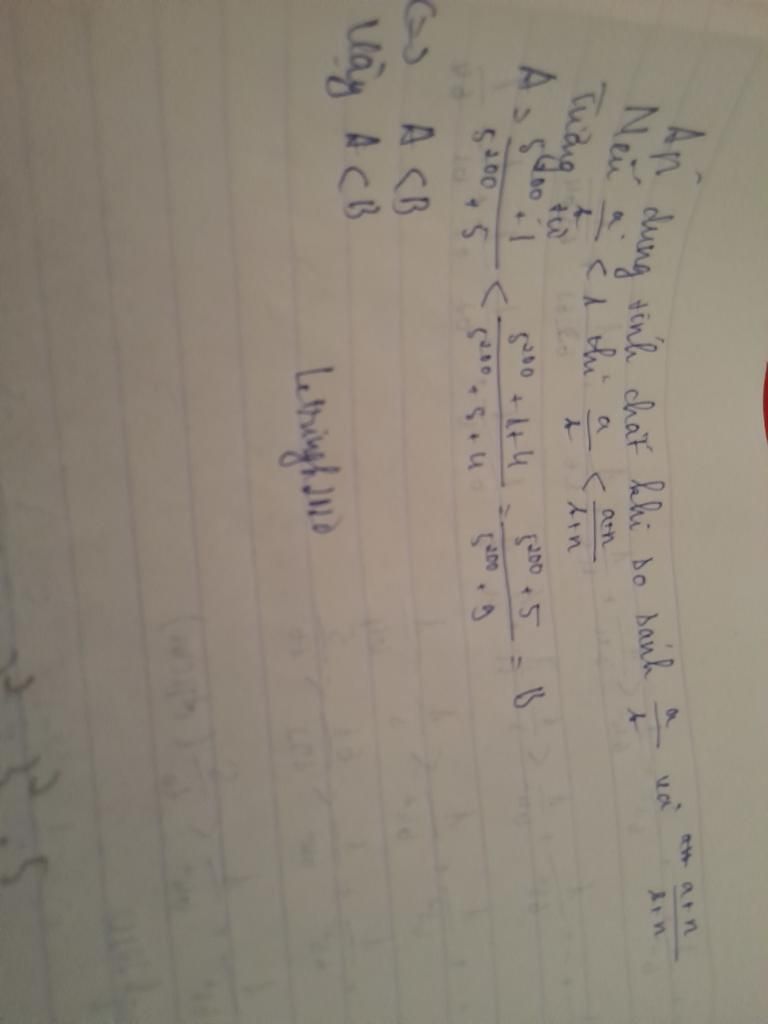 Áp dụng tính chất khi so sánh a/b và a+n/b+n
Nếu a/b < 1 thì a/b < a+n/b+n
Tương tự
A = 5^200 + 1/5^200 + 5 < 5^200 + 1 + 4/5^200 + 5 + 4 = 5^200 + 5/5^200 + 9 = B
=> A < B
Vậy A < B